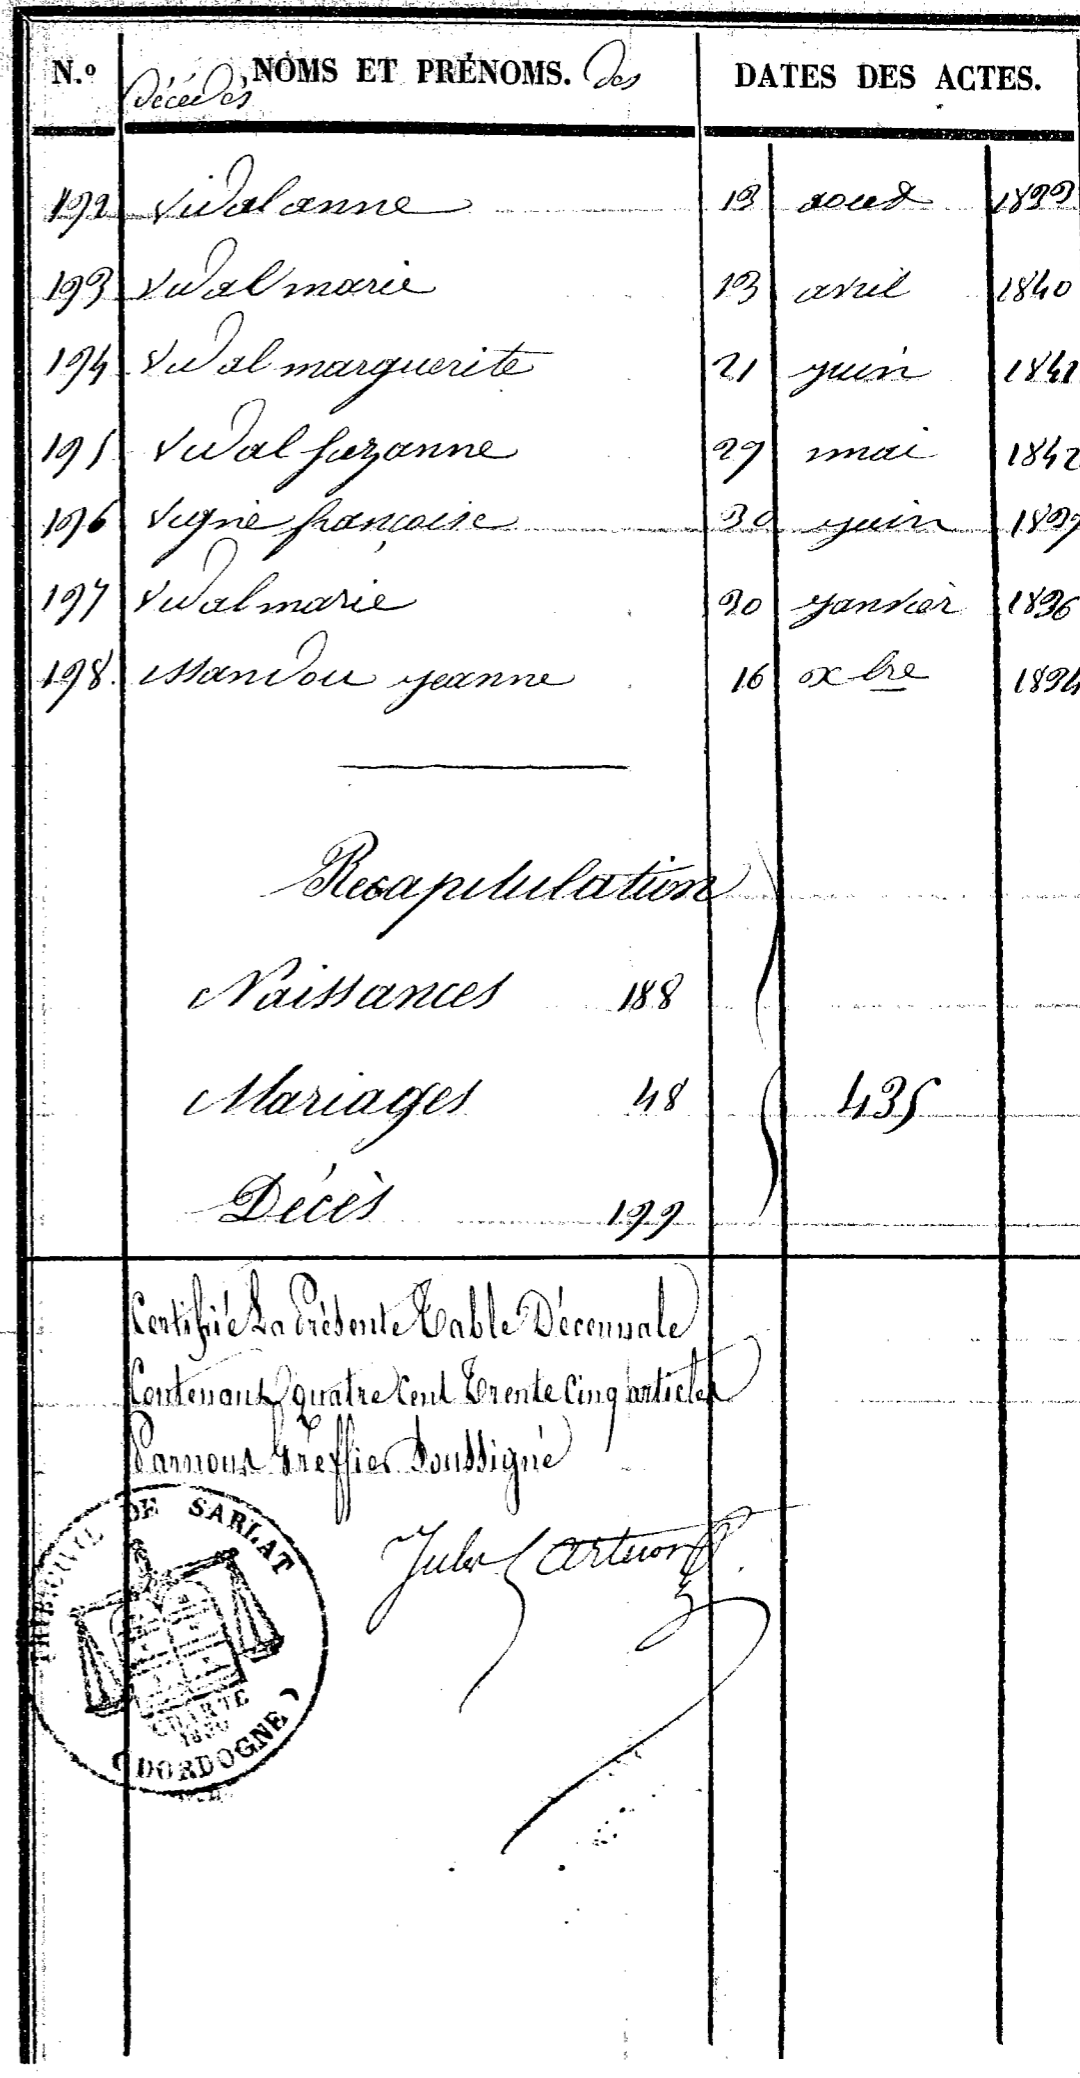 N.º NOMS ET PRÉNOMS. des décédés DATES DES ACTES.
192 vidal anne 13 aout 1833
193 vidal marie 13 avril 1840
194 vidal marguerite 21 juin 1841
195 vidal suzanne 29 mai 1842
196 vigne françoise 30 juin 1837
197 vidal marie 30 janvier 1836
198. issandou jeanne 16 xbre 1834
Recapitulation
Naissances 188
Mariages 48 435
Décès 199
Certifié La Présente Table Décennale
Contenant quatre Cent Trente Cinq articles
Par nous Greffier Soussigné
Jules
TRIB. CIVIL DE SARLAT
CHARTE
1830
(DORDOGNE)